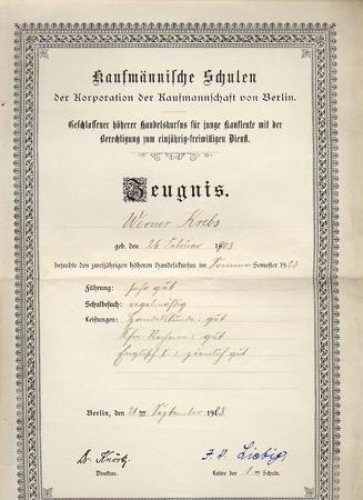 Kaufmännische Schulen
der Korporation der Kaufmannschaft von Berlin.
Geschlossener höherer Handelskursus für junge Kaufleute mit der
Berechtigung zum einjährig-freiwilligen Dienst.
Zeugnis.
Werner Krebs
geb. den 26 Februar 1903
besuchte den zweijährigen höheren Handelskursus im Sommer Semester 1923
Führung: sehr gut
Schulbesuch: regelmäßig
Leistungen: Handelskunde: gut
Kfm. Rechnen: gut
Englisch I: ziemlich gut
Berlin, den 21 ten September 1923
Dr. Knörk
Direktor.
Liebig
Leiter der 1 ten Schule.